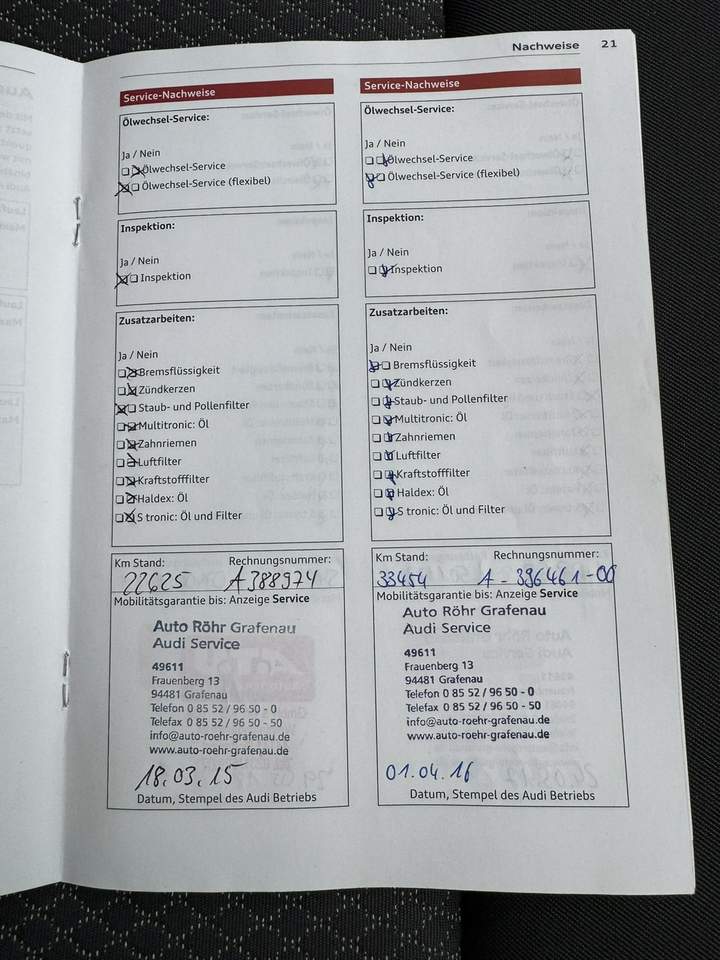 Nachweise 21
Service-Nachweise
Ölwechsel-Service:
Ja / Nein
Ölwechsel-Service
Ölwechsel-Service (flexibel)
Inspektion:
Ja / Nein
Inspektion
Zusatzarbeiten:
Ja / Nein
Bremsflüssigkeit
Zündkerzen
Staub- und Pollenfilter
Multitronic: Öl
Zahnriemen
Luftfilter
Kraftstofffilter
Haldex: Öl
S tronic: Öl und Filter
Km Stand: Rechnungsnummer:
22625 A388974
Mobilitätsgarantie bis: Anzeige Service
Auto Röhr Grafenau
Audi Service
49611
Frauenberg 13
94481 Grafenau
Telefon 0 85 52 / 96 50 - 0
Telefax 0 85 52 / 96 50 - 50
info@auto-roehr-grafenau.de
www.auto-roehr-grafenau.de
18.03.15
Datum, Stempel des Audi Betriebs
Service-Nachweise
Ölwechsel-Service:
Ja / Nein
Ölwechsel-Service
Ölwechsel-Service (flexibel)
Inspektion:
Ja / Nein
Inspektion
Zusatzarbeiten:
Ja / Nein
Bremsflüssigkeit
Zündkerzen
Staub- und Pollenfilter
Multitronic: Öl
Zahnriemen
Luftfilter
Kraftstofffilter
Haldex: Öl
S tronic: Öl und Filter
Km Stand: Rechnungsnummer:
33454 A - 396461-00
Mobilitätsgarantie bis: Anzeige Service
Auto Röhr Grafenau
Audi Service
49611
Frauenberg 13
94481 Grafenau
Telefon 0 85 52 / 96 50 - 0
Telefax 0 85 52 / 96 50 - 50
info@auto-roehr-grafenau.de
www.auto-roehr-grafenau.de
01.04.16
Datum, Stempel des Audi Betriebs